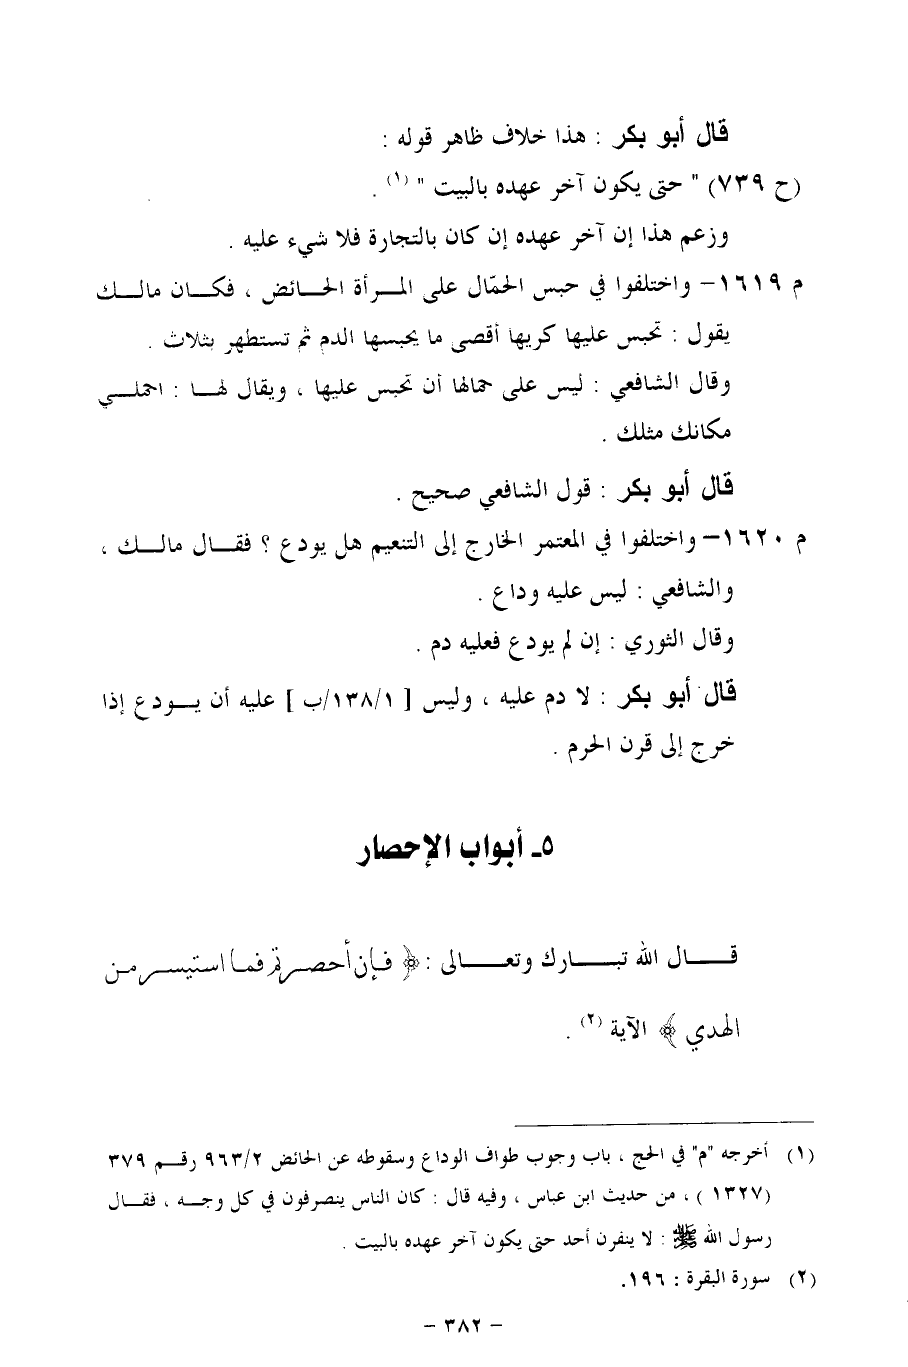 قال أبو بكر : هذا خلاف ظاهر قوله :
(ح ٧٣٩) " حتى يكون آخر عهده بالبيت " (١) .
وزعم هذا إن آخر عهده إن كان بالتجارة فلا شيء عليه .
م ١٦١٩- واختلفوا في حبس الحمّال على المـرأة الحـائض ، فكـان مالـك
يقول : تحبس عليها كريها أقصى ما يحبسها الدم ثم تستطهر بثلاث .
وقال الشافعي : ليس على حمالها أن تحبس عليها ، ويقال لهـا : احملـي
مكانك مثلك .
قال أبو بكر : قول الشافعي صحيح .
م ١٦٢٠- واختلفوا في المعتمر الخارج إلى التنعيم هل يودع ؟ فقـال مالـك ،
والشافعي : ليس عليه وداع .
وقال الثوري : إن لم يودع فعليه دم .
قال أبو بكر : لا دم عليه ، وليس [ ١٣٨/١/ب ] عليه أن يـودع إذا
خرج إلى قرن الحرم .
٥ـ أبواب الإحصار
قـال الله تبـارك وتعـالى : ﴿ فإن أحصرتم فما استيسر من
الهدي ﴾ الآية (٢) .
(١) أخرجه "م" في الحج ، باب وجوب طواف الوداع وسقوطه عن الحائض ٩٦٣/٢ رقـم ٣٧٩
(١٣٢٧ ) ، من حديث ابن عباس ، وفيه قال : كان الناس ينصرفون في كل وجـه ، فقـال
رسول الله ﷺ : لا ينفرن أحد حتى يكون آخر عهده بالبيت .
(٢) سورة البقرة : ١٩٦.
- ٣٨٢ -